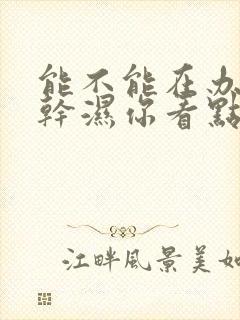 能不能在办
幹濕你看點
江畔風景美如